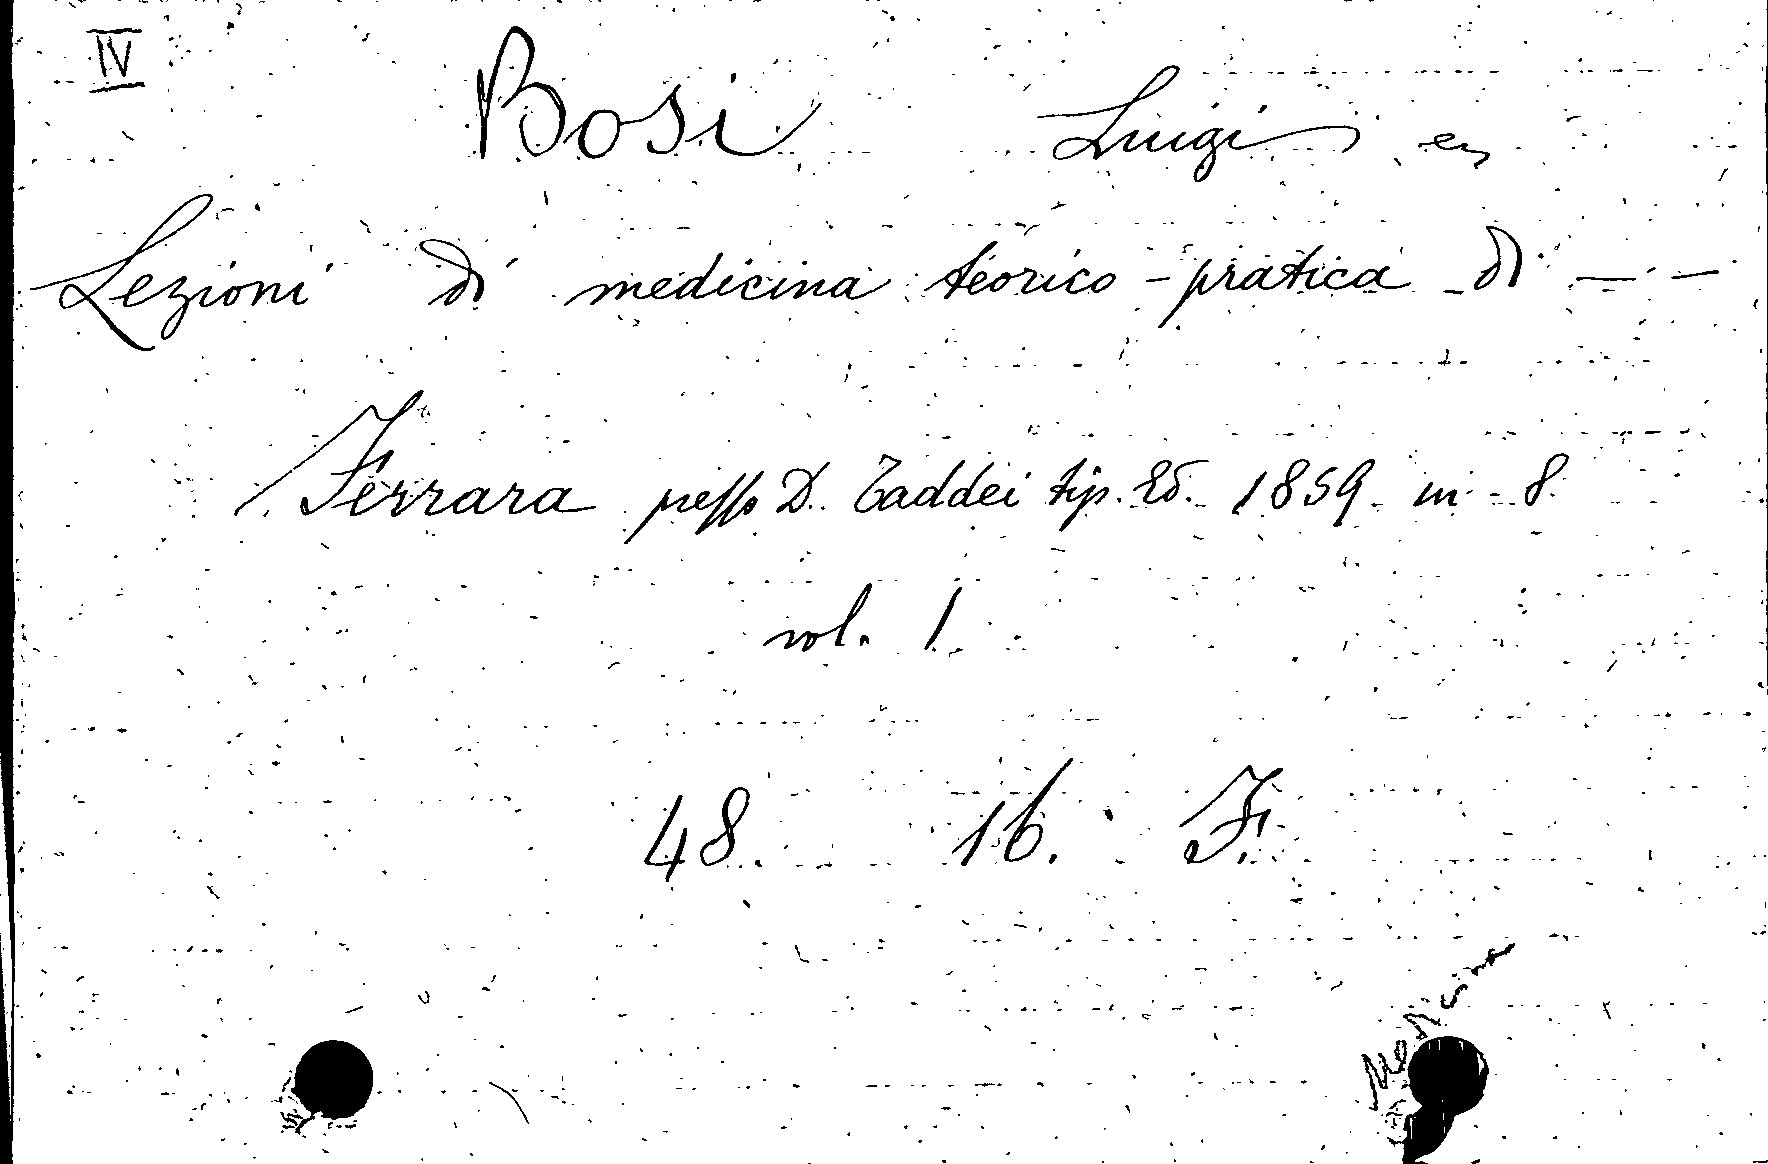 IV
Bosi Luigi
Lezioni di medicina teorico-pratica di — —
Ferrara presso D. Taddei tip. Ed. 1859 in-8
vol. 1
48 16. F.
Medicina